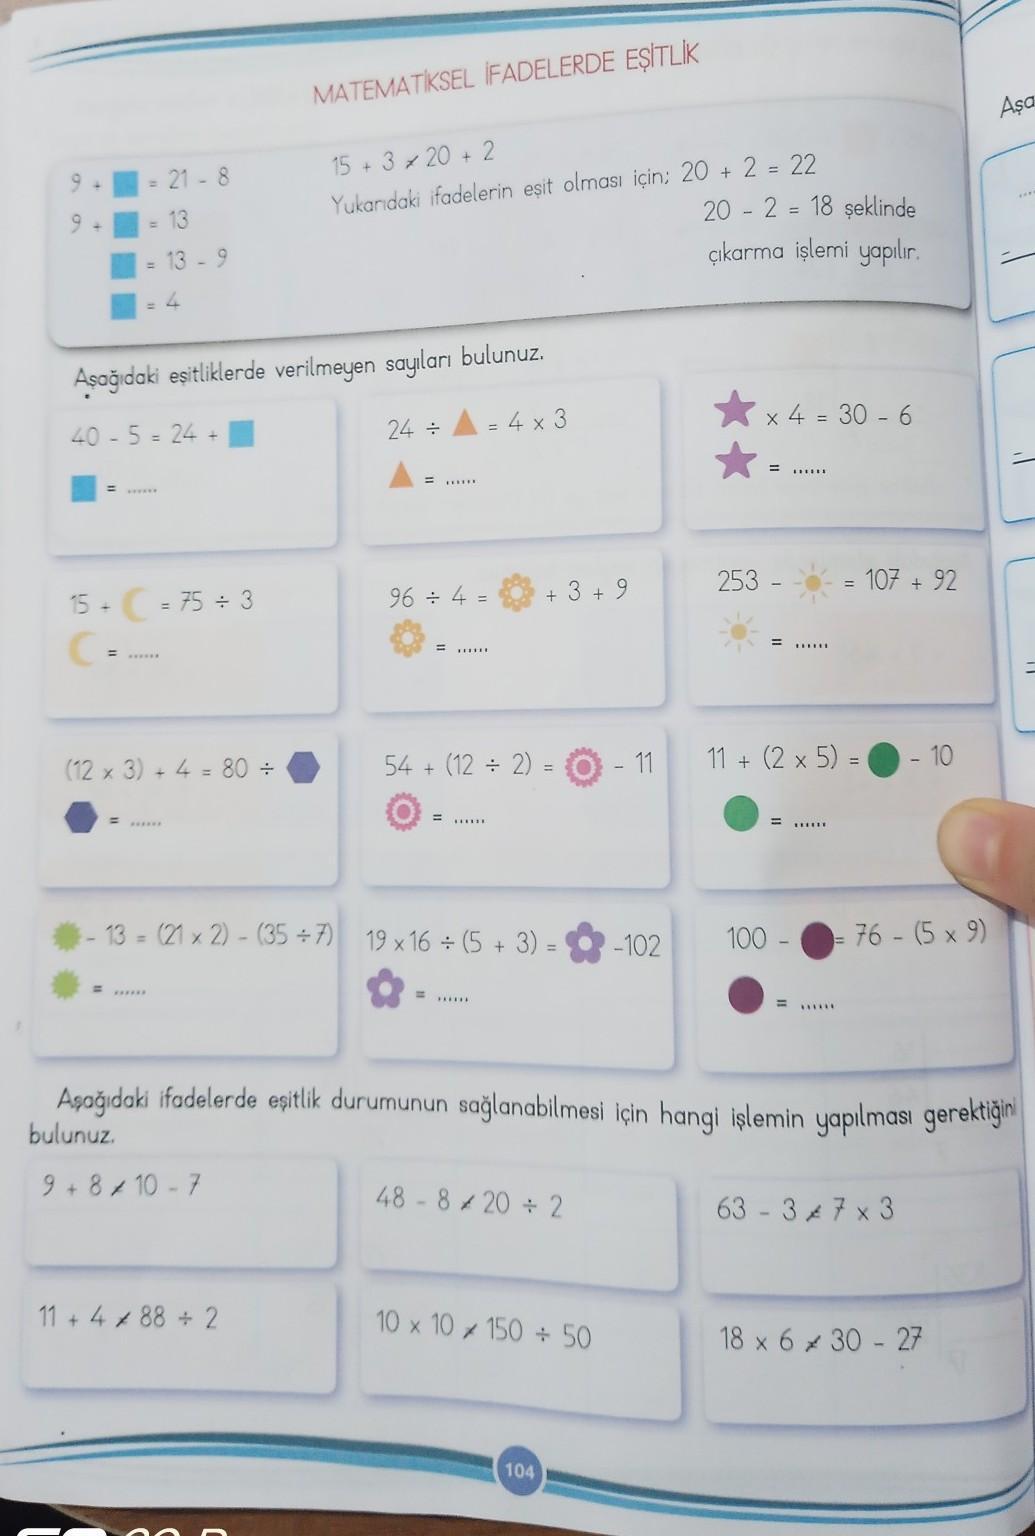 MATEMATİKSEL İFADELERDE EŞİTLİK
9 + = 21 - 8
9 + = 13
= 13 - 9
= 4
15 + 3 ≠ 20 + 2
Yukarıdaki ifadelerin eşit olması için; 20 + 2 = 22
20 - 2 = 18 şeklinde
çıkarma işlemi yapılır.
Aşağıdaki eşitliklerde verilmeyen sayıları bulunuz.
40 - 5 = 24 +
= ......
24 ÷ = 4 x 3
= ......
x 4 = 30 - 6
= ......
15 + = 75 ÷ 3
= ......
96 ÷ 4 = + 3 + 9
= ......
253 - = 107 + 92
= ......
(12 x 3) + 4 = 80 ÷
= ......
54 + (12 ÷ 2) = - 11
= ......
11 + (2 x 5) = - 10
= ......
- 13 = (21 x 2) - (35 ÷ 7)
= ......
19 x 16 ÷ (5 + 3) = -102
= ......
100 - = 76 - (5 x 9)
= ......
Aşağıdaki ifadelerde eşitlik durumunun sağlanabilmesi için hangi işlemin yapılması gerektiğini
bulunuz.
9 + 8 ≠ 10 - 7
48 - 8 ≠ 20 ÷ 2
63 - 3 ≠ 7 x 3
11 + 4 ≠ 88 ÷ 2
10 x 10 ≠ 150 ÷ 50
18 x 6 ≠ 30 - 27
104